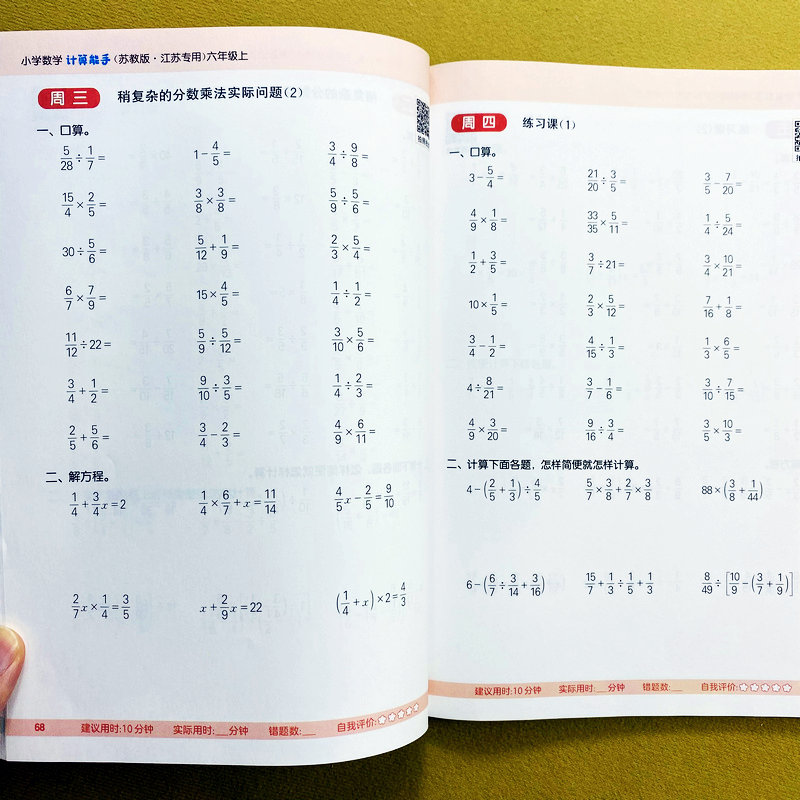 小学数学 计算能手(苏教版·江苏专用)六年级上
周三 稍复杂的分数乘法实际问题(2)
一、口算。
5/28÷1/7= 1-4/5= 3/4÷9/8=
15/4×2/5= 3/8×3/8= 5/9÷5/6=
30÷5/6= 5/12+1/9= 2/3×5/4=
6/7×7/9= 15×4/5= 1/4÷1/2=
11/12÷22= 5/9÷5/12= 3/10×5/6=
3/4+1/2= 9/10÷3/5= 1/4÷2/3=
2/5+5/6= 3/4-2/3= 4/9×6/11=
二、解方程。
1/4+3/4x=2 1/4×6/7+x=11/14 4/5x-2/5=9/10
2/7x×1/4=3/5 x+2/9x=22 (1/4+x)×2=4/3
68 建议用时:10分钟 实际用时:__分钟 错题数:__ 自我评价:☆☆☆☆☆
周四 练习课(1)
一、口算。
3-5/4= 21/20÷3/5= 3/5-7/20=
4/9×1/8= 33/35×5/11= 1/4÷5/24=
1/2+3/5= 3/7÷21= 3/4×10/21=
10×1/5= 2/3×5/12= 7/16+1/8=
3/4-1/2= 4/15÷1/3= 1/3×6/5=
4÷8/21= 3/7-1/6= 3/10÷7/15=
4/9×3/20= 9/16÷3/4= 3/5×10/3=
二、计算下面各题，怎样简便就怎样计算。
4-(2/5+1/3)÷4/5 5/7×3/8+2/7×3/8 88×(3/8+1/44)
6-(6/7÷3/14+3/16) 15/7+1/3÷1/5+1/3 8/49÷[10/9-(3/7+1/9)]
建议用时:10分钟 实际用时:__分钟 错题数:__ 自我评价:☆☆☆☆☆